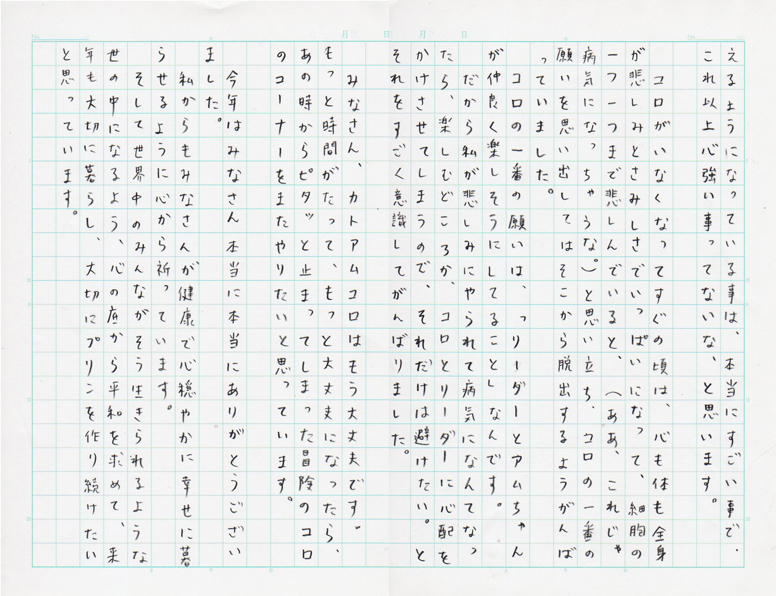 えるようになっている事は、本当にすごい事で、
これ以上心強い事ってないな、と思います。
コロがいなくなってすぐの頃は、心も体も全身
が悲しみとさみしさでいっぱいになって、細胞の
一つ一つまで悲しんでいると、(ああ、これじゃ
病気になっちゃうな。)と思い立ち、コロの一番の
願いを思い出してはそこから脱出するようがんば
っていました。
コロの一番の願いは、「リーダーとアムちゃん
が仲良く楽しそうにしてること」なんです。
だから私が悲しみにやられて病気になんてなっ
たら、楽しむどころか、コロとリーダーに心配を
かけさせてしまうので、それだけは避けたい。と
それをすごく意識してがんばりました。
みなさん、カトアムコロはもう大丈夫です。
もっと時間がたって、もっと大丈夫になったら、
あの時からピタッと止まってしまった冒険のコロ
のコーナーをまたやりたいと思っています。
今年はみなさん本当に本当にありがとうござい
ました。
私からもみなさんが健康で心穏やかに幸せに暮
らせるように心から祈っています。
そして世界中のみんながそう生きられるような
世の中になるよう、心の底から平和を求めて、来
年も大切に暮らし、大切にプリンを作り続けたい
と思っています。